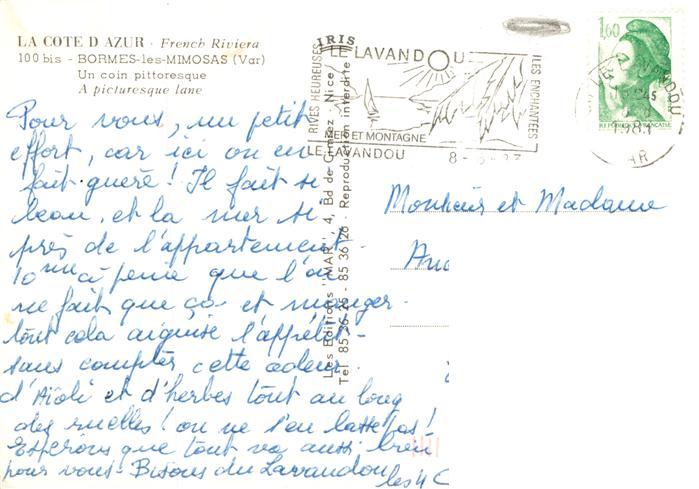 LA COTE D AZUR - French Riviera
100 bis - BORMES-les-MIMOSAS (Var)
Un coin pittoresque
A picturesque lane
Pour vous, un petit
effort, car ici on en
fait guère ! Il fait si
beau, et la mer si
près de l'appartement -
10 me à peine que l'on
ne fait que ça - et manger -
tout cela aiguise l'appétit -
sans compter cette odeur
d'Aïoli et d'herbes tout au long
des ruelles ! on ne s'en lasse pas !
Espérons que tout va aussi bien
pour vous - Bisous du Lavandou
les 4 C
IRIS
Les Editions "MAR", 4, Bd de Cimiez, Nice
Tel 85 36 25 - 85 36 26 - Reproduction interdite
RIVES HEUREUSES
LE LAVANDOU
ILES ENCHANTÉES
MER ET MONTAGNE
LE LAVANDOU
1,60
REPUBLIQUE FRANÇAISE
LAVANDOU
VAR
Monsieur et Madame